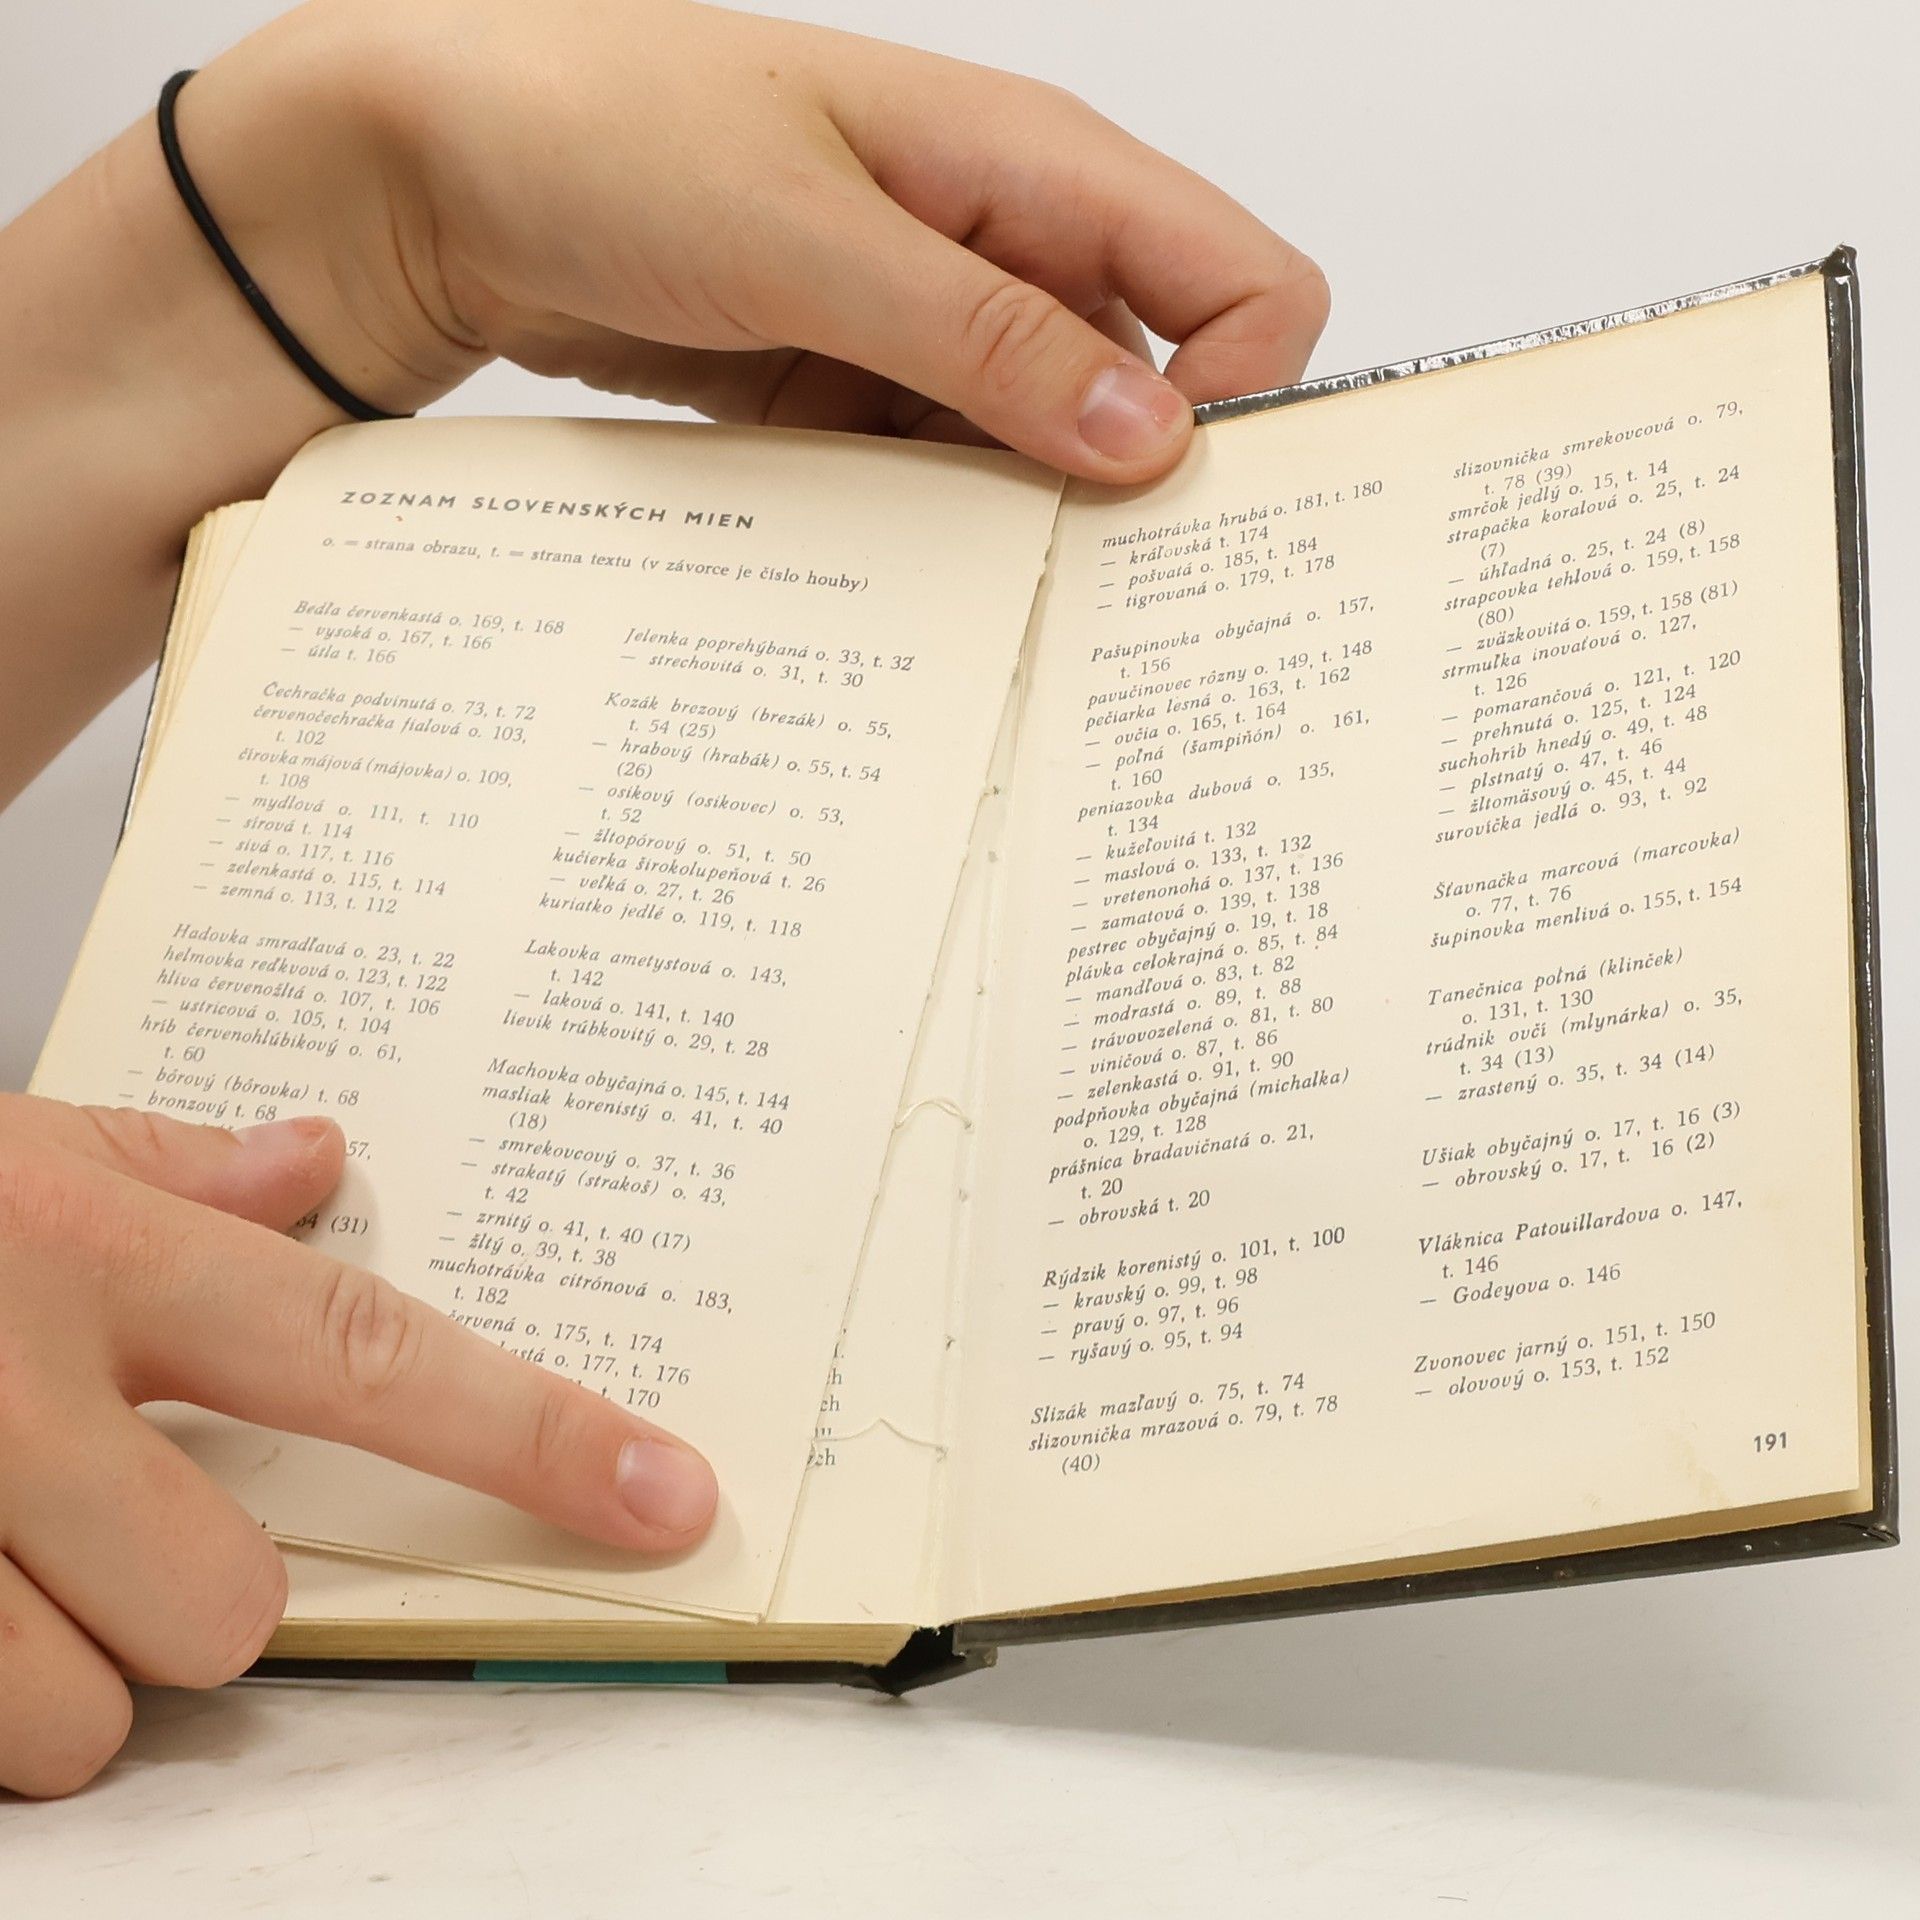 ZOZNAM SLOVENSKÝCH MIEN
o. = strana obrazu, t. = strana textu (v závorce je číslo houby)
Bedľa červenkastá o. 169, t. 168
— vysoká o. 167, t. 166
— útla t. 166
Čechračka podvinutá o. 73, t. 72
červenočechračka fialová o. 103,
t. 102
čírovka májová (májovka) o. 109,
t. 108
— mydlová o. 111, t. 110
— sírová t. 114
— sivá o. 117, t. 116
— zelenkastá o. 115, t. 114
— zemná o. 113, t. 112
Hadovka smradľavá o. 23, t. 22
helmovka reďkvová o. 123, t. 122
hliva červenožltá o. 107, t. 106
— ustricová o. 105, t. 104
hríb červenohlúbikový o. 61,
t. 60
— bôrový (bôrovka) t. 68
— bronzový t. 68
57,
(31)
Jelenka poprehýbaná o. 33, t. 32
— strechovitá o. 31, t. 30
Kozák brezový (brezák) o. 55,
t. 54 (25)
— hrabový (hrabák) o. 55, t. 54
(26)
— osikový (osikovec) o. 53,
t. 52
— žltopórový o. 51, t. 50
kučierka širokolupeňová t. 26
— veľká o. 27, t. 26
kuriatko jedlé o. 119, t. 118
Lakovka ametystová o. 143,
t. 142
— laková o. 141, t. 140
lievik trúbkovitý o. 29, t. 28
Machovka obyčajná o. 145, t. 144
masliak korenistý o. 41, t. 40
(18)
— smrekovcový o. 37, t. 36
— strakatý (strakoš) o. 43,
t. 42
— zrnitý o. 41, t. 40 (17)
— žltý o. 39, t. 38
muchotrávka citrónová o. 183,
t. 182
červená o. 175, t. 174
o. 177, t. 176
t. 170
ch
ch
ch
muchotrávka hrubá o. 181, t. 180
— kráľovská t. 174
— pošvatá o. 185, t. 184
— tigrovaná o. 179, t. 178
Pašupinovka obyčajná o. 157,
t. 156
pavučinovec rôzny o. 149, t. 148
pečiarka lesná o. 163, t. 162
— ovčia o. 165, t. 164
— poľná (šampiňón) o. 161,
t. 160
peniazovka dubová o. 135,
t. 134
— kužeľovitá t. 132
— maslová o. 133, t. 132
— vretenonohá o. 137, t. 136
— zamatová o. 139, t. 138
pestrec obyčajný o. 19, t. 18
plávka celokrajná o. 85, t. 84
— mandľová o. 83, t. 82
— modrastá o. 89, t. 88
— trávovozelená o. 81, t. 80
— viničová o. 87, t. 86
— zelenkastá o. 91, t. 90
podpňovka obyčajná (michalka)
o. 129, t. 128
prášnica bradavičnatá o. 21,
t. 20
— obrovská t. 20
Rýdzik korenistý o. 101, t. 100
— kravský o. 99, t. 98
— pravý o. 97, t. 96
— ryšavý o. 95, t. 94
Slizák mazľavý o. 75, t. 74
slizovnička mrazová o. 79, t. 78
(40)
slizovnička smrekovcová o. 79,
t. 78 (39)
smrčok jedlý o. 15, t. 14
strapačka koralová o. 25, t. 24
(7)
— úhľadná o. 25, t. 24 (8)
strapcovka tehlová o. 159, t. 158
(80)
— zväzkovitá o. 159, t. 158 (81)
strmuľka inovaťová o. 127,
t. 126
— pomarančová o. 121, t. 120
— prehnutá o. 125, t. 124
suchohríb hnedý o. 49, t. 48
— plstnatý o. 47, t. 46
— žltomäsový o. 45, t. 44
surovička jedlá o. 93, t. 92
Šťavnačka marcová (marcovka)
o. 77, t. 76
šupinovka menlivá o. 155, t. 154
Tanečnica poľná (klinček)
o. 131, t. 130
trúdnik ovčí (mlynárka) o. 35,
t. 34 (13)
— zrastený o. 35, t. 34 (14)
Ušiak obyčajný o. 17, t. 16 (3)
— obrovský o. 17, t. 16 (2)
Vláknica Patouillardova o. 147,
t. 146
— Godeyova o. 146
Zvonovec jarný o. 151, t. 150
— olovový o. 153, t. 152
191